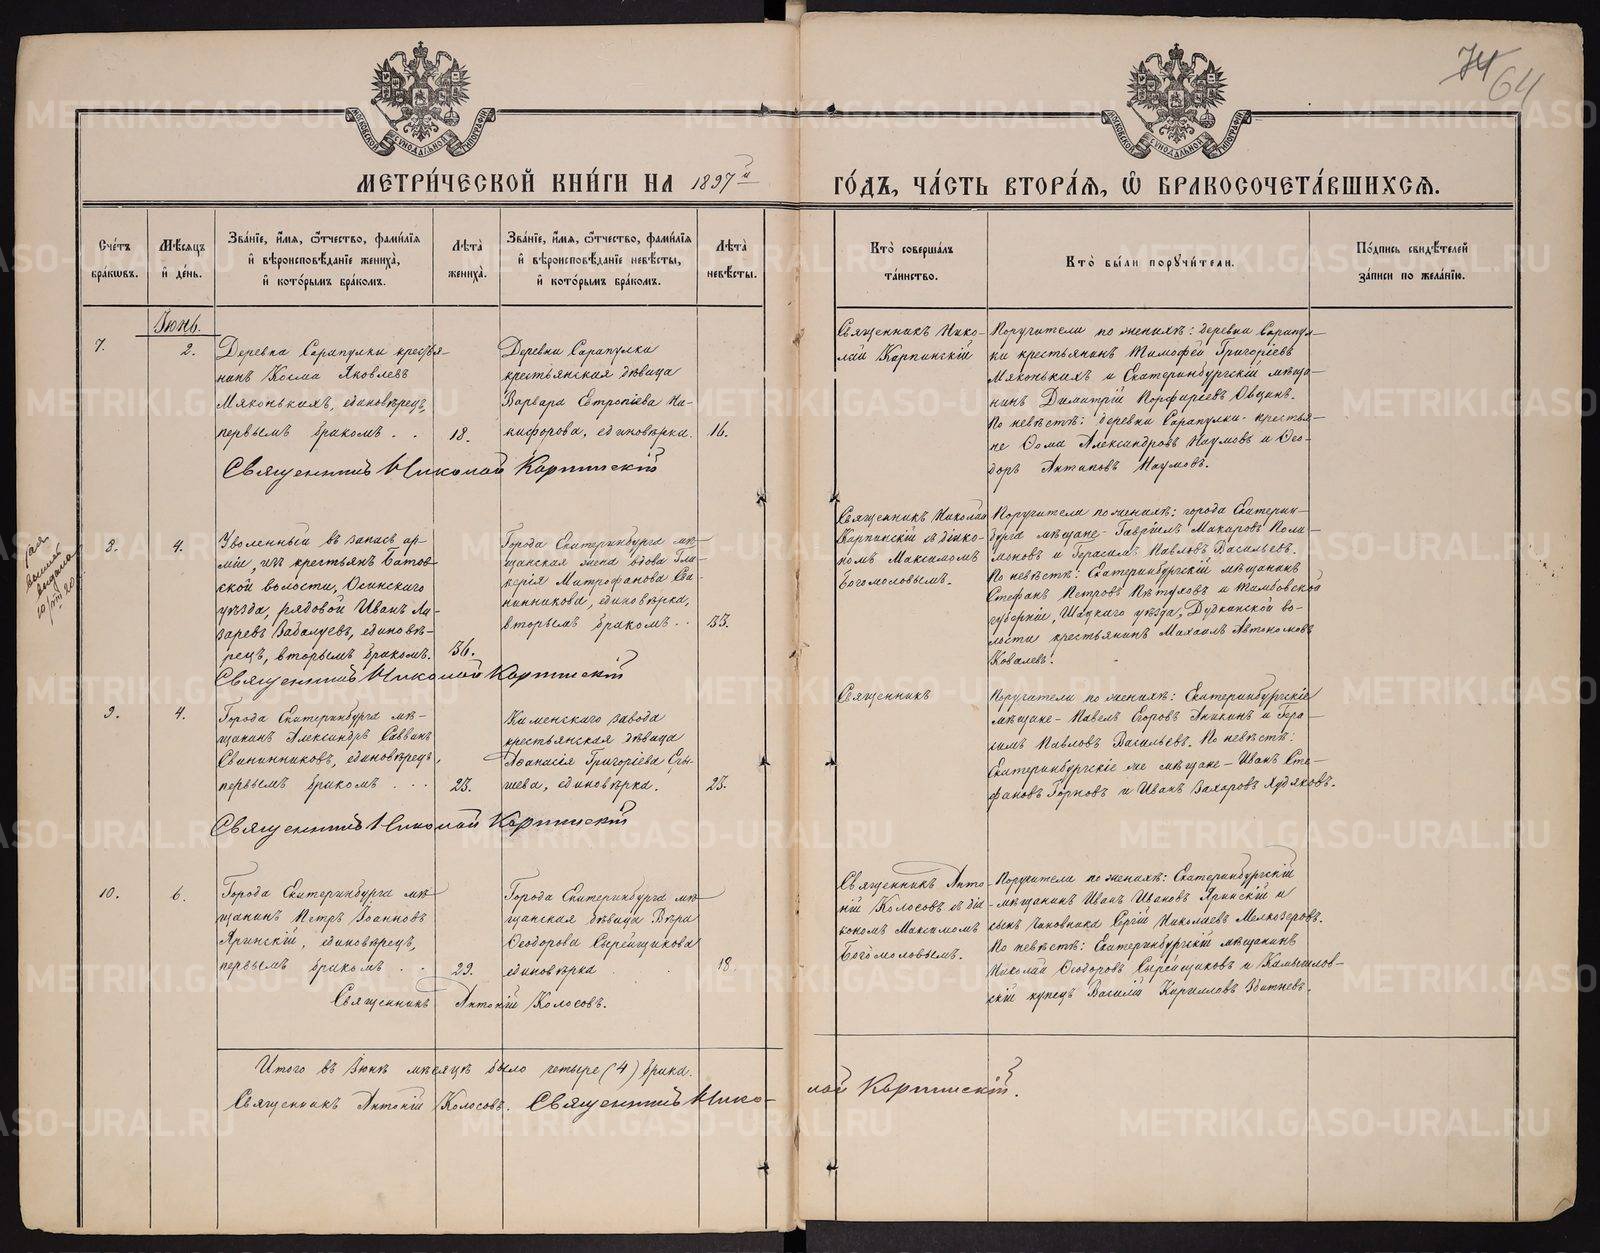 74
64
МОСКОВСКОЙ СУНОДАЛЬНОЙ ТИПОГРАФІИ
МОСКОВСКОЙ СУНОДАЛЬНОЙ ТИПОГРАФІИ
МЕТРИ́ЧЕСКОЙ КНИ́ГИ НА 1897й ГО́ДЪ, ЧА́СТЬ ВТОРА́Ѧ, Ѽ БРАКОСОЧЕТА́ВШИХСѦ.
Сче́тъ бра́кѡвъ.
Мѣ́сѧцъ и҆ де́нь.
Зва́нїе, и҆́мѧ, ѻ҆́тчество, фами́лїѧ
и҆ вѣроисповѣ́данїе жениха̀,
и҆ кото́рымъ бра́комъ.
Лѣ́та̀ жениха̀.
Зва́нїе, и҆́мѧ, ѻ҆́тчество, фами́лїѧ
и҆ вѣроисповѣ́данїе невѣ́сты,
и҆ кото́рымъ бра́комъ.
Лѣ́та̀ невѣ́сты.
Кто̀ соверша́лъ
та́инство.
Кто̀ бы́ли порꙋчи́тели.
По́дпись свидѣ́телей
за́писи по жела́нїю.
Іюнь.
7.
2.
Деревни Сарапулки крестья-
нинъ Косма Яковлевъ
Мяконькихъ, единовѣрецъ,
первымъ бракомъ . .
18.
Деревни Сарапулки
крестьянская дѣвица
Варвара Евтропіева Ни-
кифорова, единовѣрка.
16.
Священникъ Нико-
лай Карпинскій
Поручители по женихѣ: деревни Сарапул-
ки крестьянинъ Тимофей Григоріевъ
Мяконькихъ и Екатеринбургскій мѣща-
нинъ Димитрій Порфиріевъ Овчинъ.
По невѣстѣ: деревни Сарапулки крестья-
не Ѳома Александровъ Наумовъ и Ѳео-
доръ Антиповъ Наумовъ.
Священникъ Николай Карпинскій
8.
4.
Уволенный въ запасъ ар-
міи, изъ крестьянъ
ской волости, Осинскаго
уѣзда, рядовой Иванъ Ла-
заревъ Забалуевъ, единовѣ-
рецъ, вторымъ бракомъ.
36.
Города Екатеринбурга мѣ-
щанская жена вдова Гли-
керія Митрофанова
единовѣрка,
вторымъ бракомъ . .
33.
Священникъ Николай
Карпинскій съ діако-
номъ Максимомъ
Богомоловымъ.
Поручители по женихѣ: города Екатерин-
бурга мѣщане - Гавріилъ Макаровъ
и Герасимъ Павловъ Васильевъ.
По невѣстѣ: Екатеринбургскій мѣщанинъ
Стефанъ Петровъ Пѣтуховъ и Тамбовской
губерніи, Шацкаго уѣзда, Дудкинской во-
лости крестьянинъ Михаилъ Автономовъ
Ковалевъ.
Священникъ Николай Карпинскій
9.
4.
Города Екатеринбурга мѣ-
щанинъ Александръ Саввинъ
Свининниковъ, единовѣрецъ,
первымъ бракомъ . . .
23.
Каменскаго завода
крестьянская дѣвица
Аѳанасія Григоріева
единовѣрка.
23.
Священникъ
Поручители по женихѣ: Екатеринбургскіе
мѣщане - Павелъ Егоровъ Аникинъ и Гера-
симъ Павловъ Васильевъ. По невѣстѣ:
Екатеринбургскіе же мѣщане - Иванъ Сте-
фановъ и Иванъ Захаровъ Худяковъ.
Священникъ Николай Карпинскій
10.
6.
Города Екатеринбурга мѣ-
щанинъ Петръ Іоанновъ
Яринскій, единовѣрецъ,
первымъ бракомъ . .
29.
Города Екатеринбурга мѣ-
щанская дѣвица Вѣра
Ѳеодорова Сырейщикова
единовѣрка
18.
Священникъ Анто-
ній Колосовъ съ діа-
кономъ Максимомъ
Богомоловымъ.
Поручители по женихѣ: Екатеринбургскій
мѣщанинъ Иванъ Ивановъ Яринскій и
сынъ чиновника Сергій Николаевъ Мелкозеровъ.
По невѣстѣ: Екатеринбургскій мѣщанинъ
Николай Ѳеодоровъ Сырейщиковъ и Камышлов-
скій купецъ Василій Кирилловъ
Священникъ Антоній Колосовъ.
Итого въ Іюнѣ мѣсяцѣ было четыре (4) брака.
Священникъ Антоній Колосовъ. Священникъ Николай Карпинскій.
METRIKI.GASO-URAL.RU